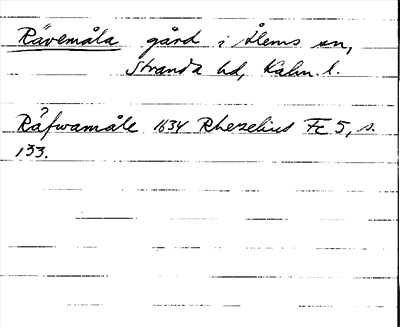 Rävemåla gård i Ålems sn,
Stranda hd, Kalm. l.
Råfwamåle 1634 Rhezelius Fc 5, s.
133.